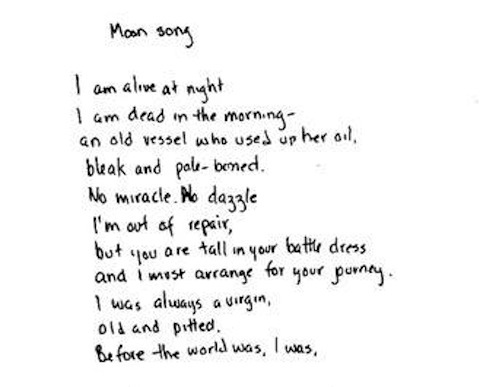 Moon song
I am alive at night
I am dead in the morning-
an old vessel who used up her oil,
bleak and pale-boned.
No miracle. No dazzle
I'm out of repair,
but you are tall in your battle dress
and I must arrange for your journey.
I was always a virgin,
old and pitted.
Before the world was, I was,